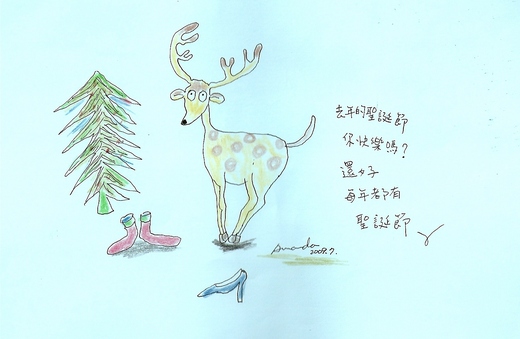 去年的聖誕節
你快樂嗎？
還好
每年都有
聖誕節
Amanda
2009.7.